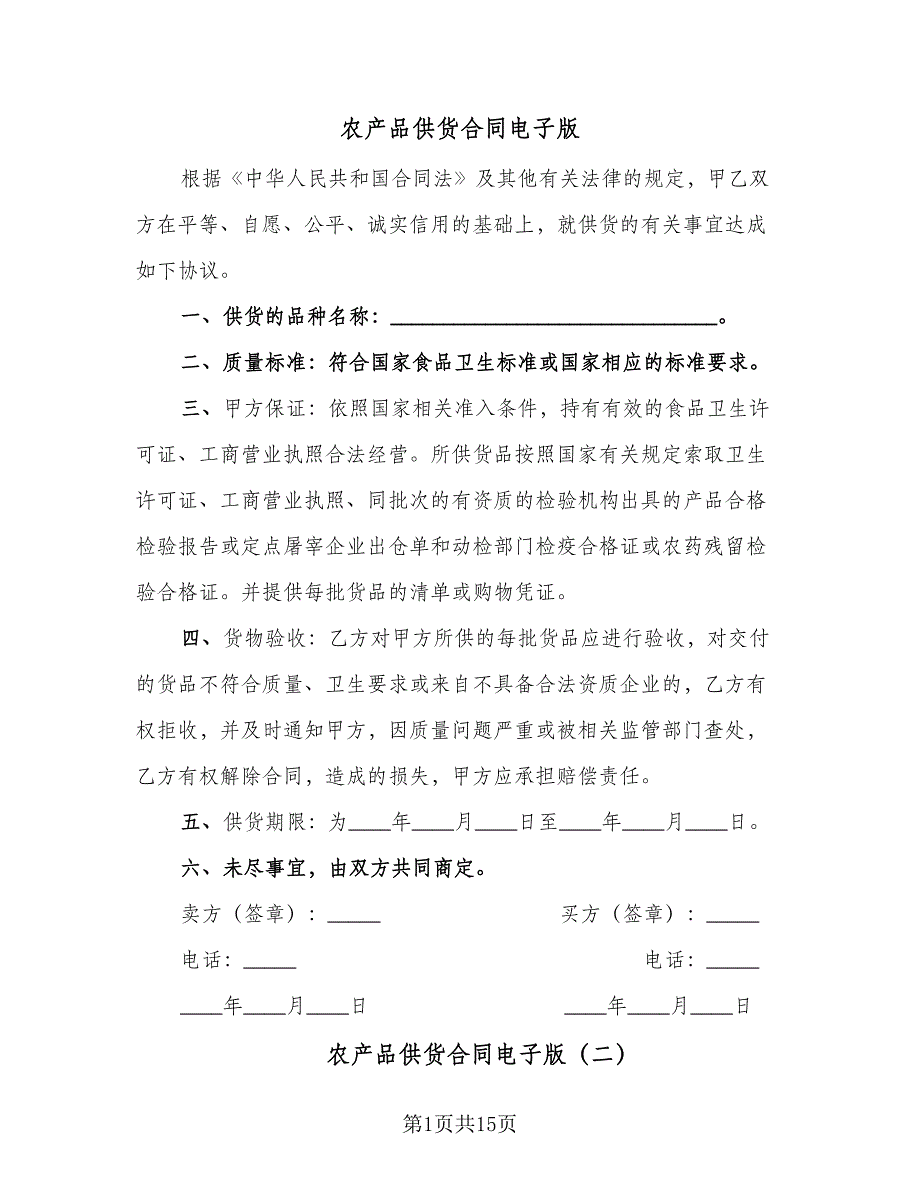 农产品供货合同电子版
根据《中华人民共和国合同法》及其他有关法律的规定，甲乙双
方在平等、自愿、公平、诚实信用的基础上，就供货的有关事宜达成
如下协议。
一、供货的品种名称：_______________________________。
二、质量标准：符合国家食品卫生标准或国家相应的标准要求。
三、甲方保证：依照国家相关准入条件，持有有效的食品卫生许
可证、工商营业执照合法经营。所供货品按照国家有关规定索取卫生
许可证、工商营业执照、同批次的有资质的检验机构出具的产品合格
检验报告或定点屠宰企业出仓单和动检部门检疫合格证或农药残留检
验合格证。并提供每批货品的清单或购物凭证。
四、货物验收：乙方对甲方所供的每批货品应进行验收，对交付
的货品不符合质量、卫生要求或来自不具备合法资质企业的，乙方有
权拒收，并及时通知甲方，因质量问题严重或被相关监管部门查处，
乙方有权解除合同，造成的损失，甲方应承担赔偿责任。
五、供货期限：为____年____月____日至____年____月____日。
六、未尽事宜，由双方共同商定。
卖方（签章）：_____ 买方（签章）：_____
电话：_____ 电话：_____
____年____月____日 ____年____月____日
农产品供货合同电子版（二）
第1页共15页